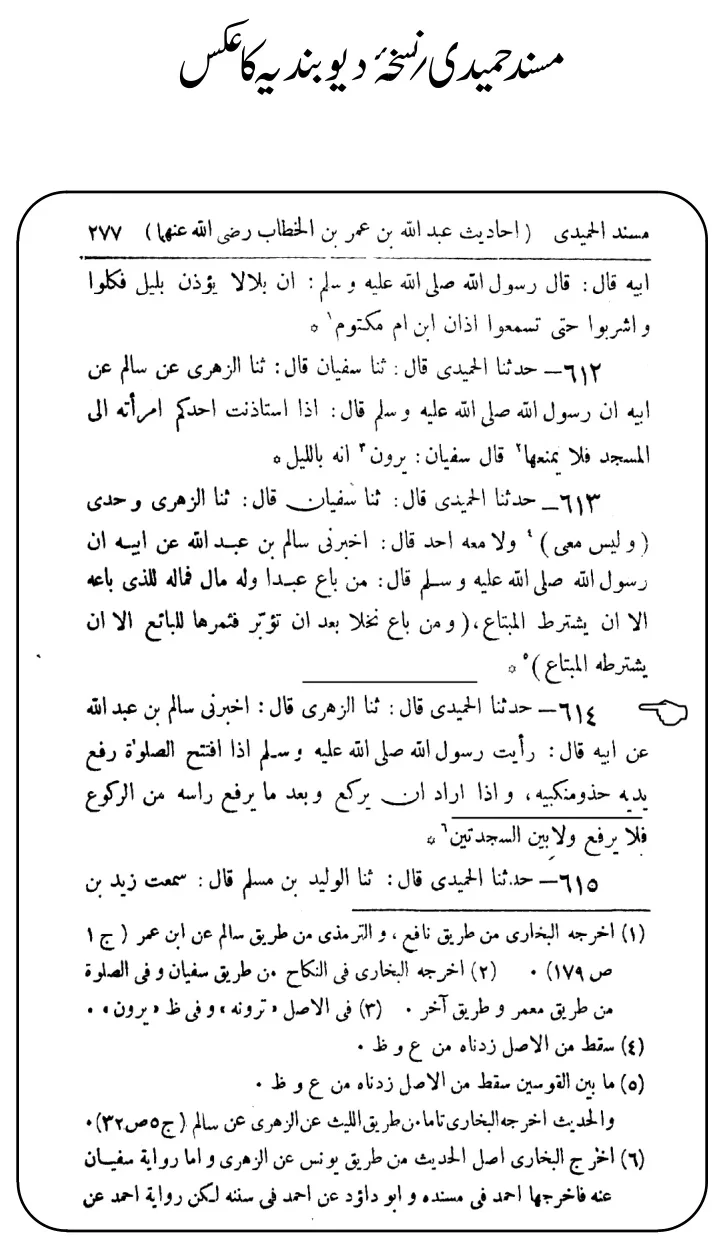 مسند حمیدی/نسخۂ دیوبندیہ کا عکس
مسند الحمیدی (احادیث عبد الله بن عمر بن الخطاب رضی الله عنهما) ٢٧٧
ابیه قال: قال رسول الله صلی الله علیه و سلم: ان بلالا یؤذن بلیل فکلوا
و اشربوا حتی تسمعوا اذان ابن ام مکتوم١ *
٦١٢– حدثنا الحمیدی قال: ثنا سفیان قال: ثنا الزهری عن سالم عن
ابیه ان رسول الله صلی الله علیه و سلم قال: اذا استاذنت احدکم امرأته الی
المسجد فلا یمنعها٢ قال سفیان: یرون٣ انه باللیل *
٦١٣– حدثنا الحمیدی قال: ثنا سفیان قال: ثنا الزهری و حدی
(و لیس معی)٤ ولا معه احد قال: اخبرنی سالم بن عبد الله عن ابیه ان
رسول الله صلی الله علیه و سلم قال: من باع عبدا وله مال فماله للذی باعه
الا ان یشترط المبتاع، (و من باع نخلا بعد ان تؤبّر فثمرها للبائع الا ان
یشترطه المبتاع)٥ *
٦١٤– حدثنا الحمیدی قال: ثنا الزهری قال: اخبرنی سالم بن عبد الله
عن ابیه قال: رأیت رسول الله صلی الله علیه و سلم اذا افتتح الصلوٰة رفع
یدیه حذومنکبیه، و اذا اراد ان یرکع و بعد ما یرفع راسه من الرکوع
فلا یرفع ولا بین السجدتین٦ *
٦١٥– حدثنا الحمیدی قال: ثنا الولید بن مسلم قال: سمعت زید بن
(١) اخرجه البخاری من طریق نافع، و الترمذی من طریق سالم عن ابن عمر (ج ١
ص ١٧٩) ٠ (٢) اخرجه البخاری فی النکاح من طریق سفیان و فی الصلوة
من طریق معمر و طریق آخر ٠ (٣) فی الاصل «ترونه» و فی ظ «یرون» ٠
(٤) سقط من الاصل زدناه من ع و ظ ٠
(٥) ما بین القوسین سقط من الاصل زدناه من ع و ظ ٠
والحدیث اخرجه البخاری تاما من طریق اللیث عن الزهری عن سالم (ج٥ ص٣٢) ٠
(٦) اخرج البخاری اصل الحدیث من طریق یونس عن الزهری و اما روایة سفیان
عنه فاخرجها احمد فی مسنده و ابو داؤد عن احمد فی سننه لکن روایة احمد عن